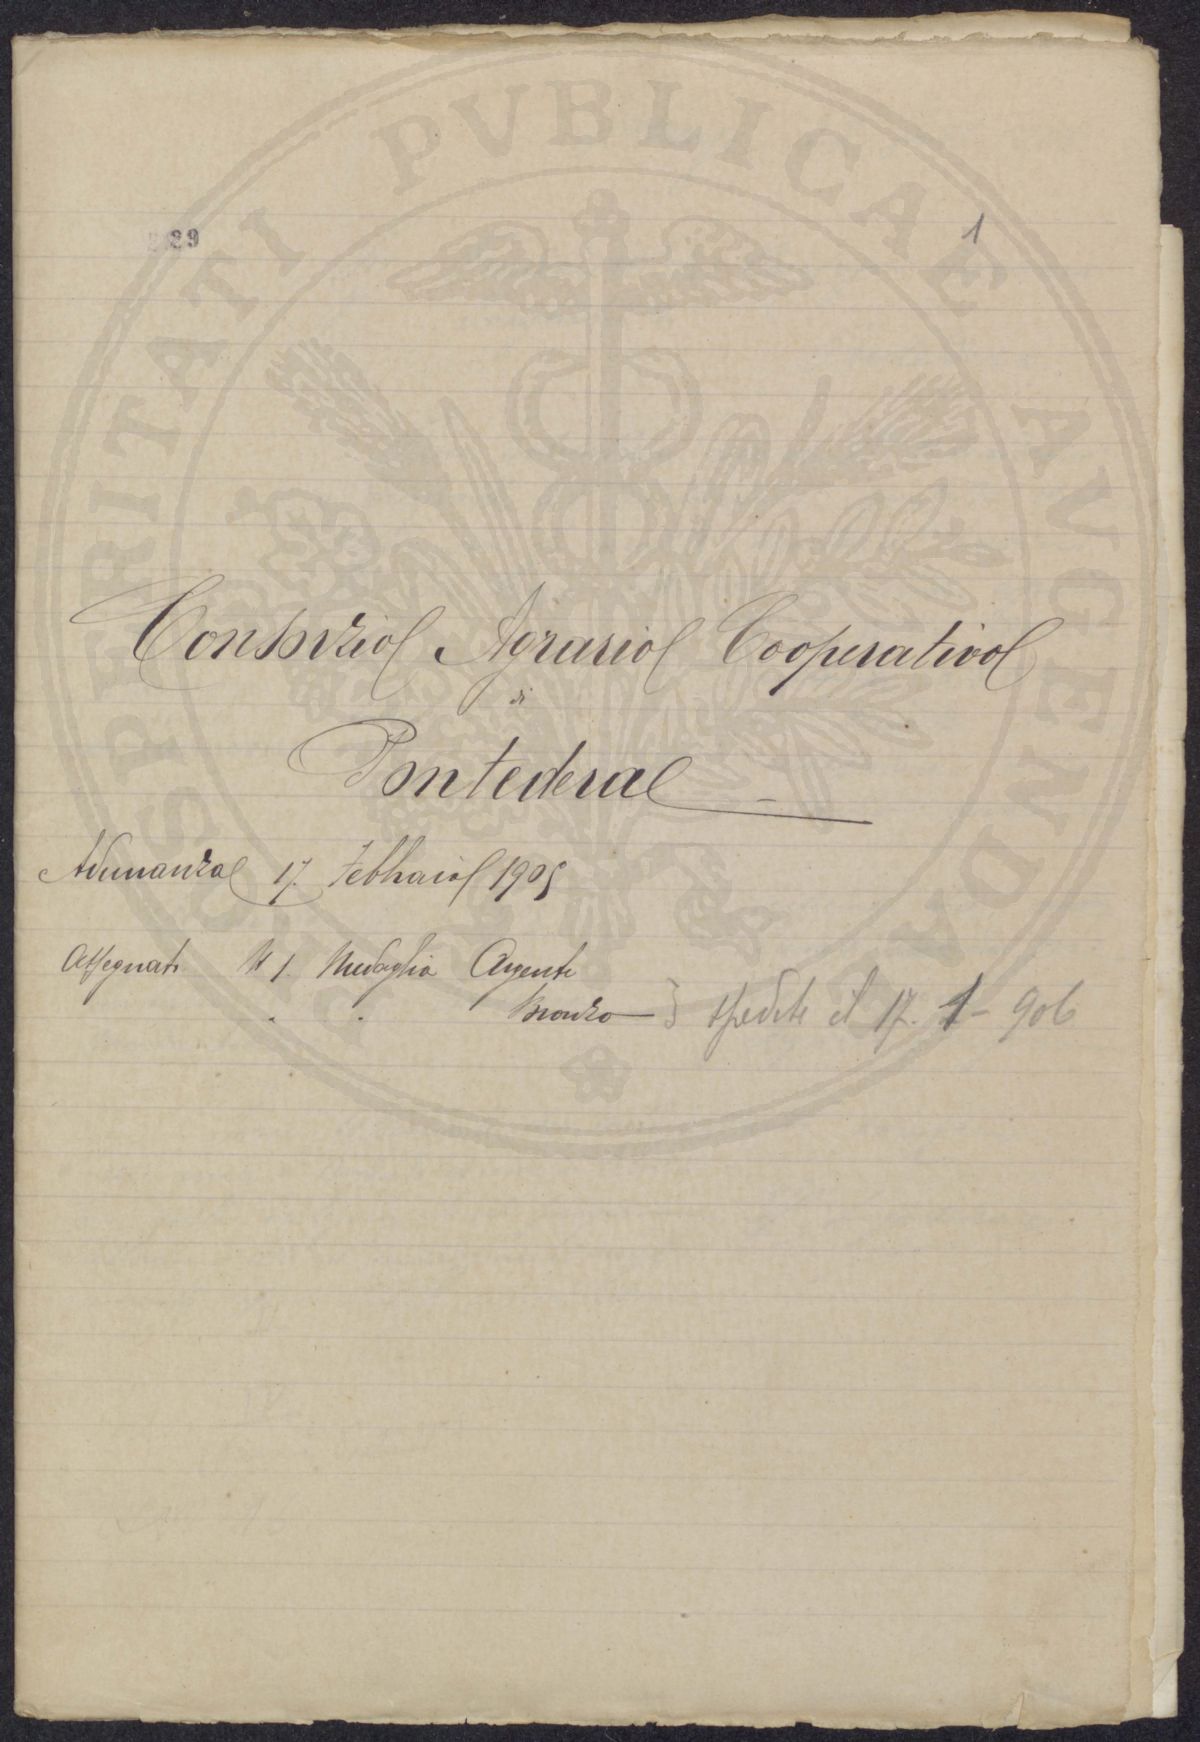 29
1
Consorzio Agrario Cooperativo
di
Pontedera
Adunanza 17. Febbraio 1905
Assegnati N 1. Medaglia Argento
" " Bronzo } spedite il 17. 1 - 906
PROSPERITATI PVBLICAE AVGENDAE